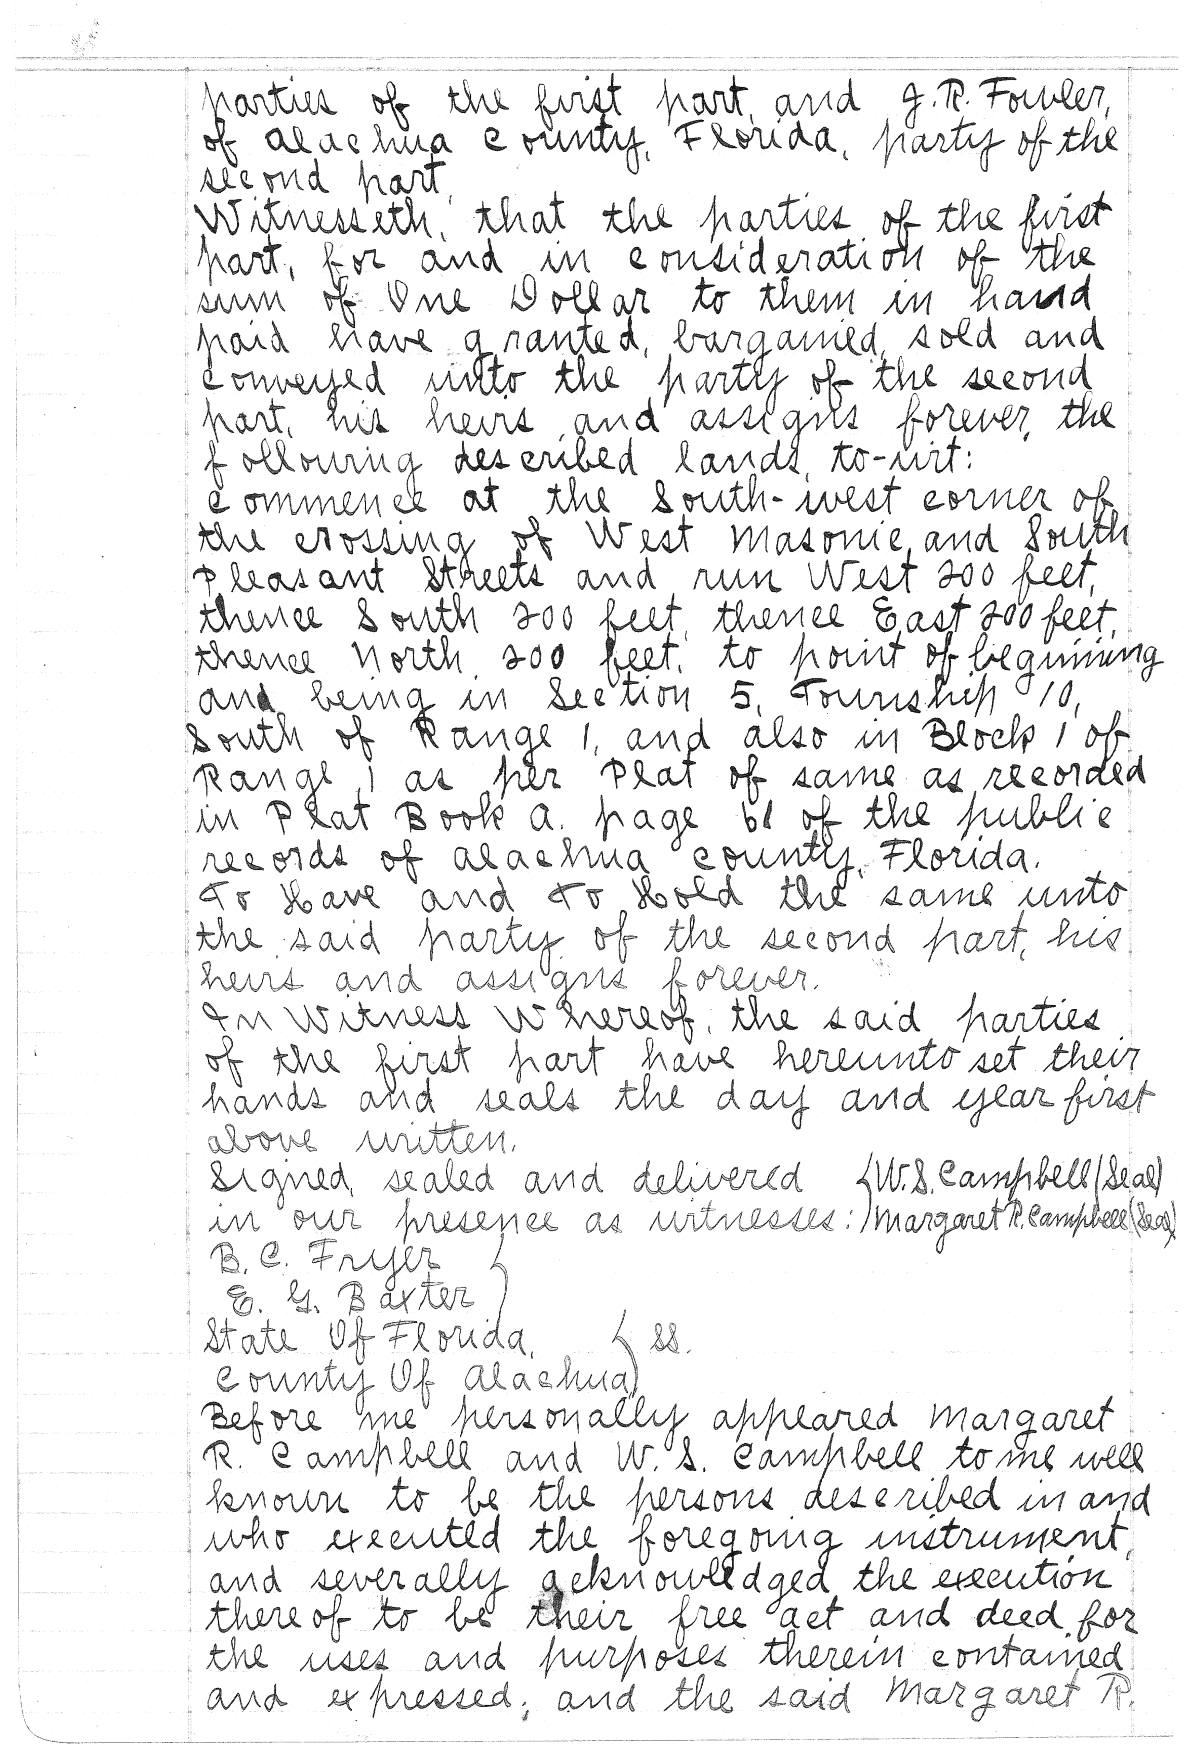 parties of the first part, and J. R. Fowler,
of Alachua County, Florida, party of the
second part,
Witnesseth, that the parties of the first
part, for and in consideration of the
sum of One Dollar to them in hand
paid have granted, bargained, sold and
conveyed unto the party of the second
part, his heirs and assigns forever, the
following described lands, to-wit:
Commence at the South-west corner of
the crossing of West Masonic and South
Pleasant Streets and run West 200 feet,
thence South 200 feet, thence East 200 feet,
thence North 200 feet, to point of beginning
and being in Section 5, Township 10,
South of Range 1, and also in Block 1 of
Range 1 as per Plat of same as recorded
in Plat Book A. page 61 of the public
records of Alachua County, Florida.
To Have and To Hold the same unto
the said party of the second part, his
heirs and assigns forever.
In Witness Whereof, the said parties
of the first part have hereunto set their
hands and seals the day and year first
above written.
Signed, sealed and delivered W. S. Campbell (Seal)
in our presence as witnesses: Margaret R. Campbell (Seal)
B. C. Fryer
E. G. Baxter
State Of Florida, ss.
County Of Alachua
Before me personally appeared Margaret
R. Campbell and W. S. Campbell to me well
known to be the persons described in and
who executed the foregoing instrument,
and severally acknowledged the execution
thereof to be their free act and deed for
the uses and purposes therein contained
and expressed; and the said Margaret R.